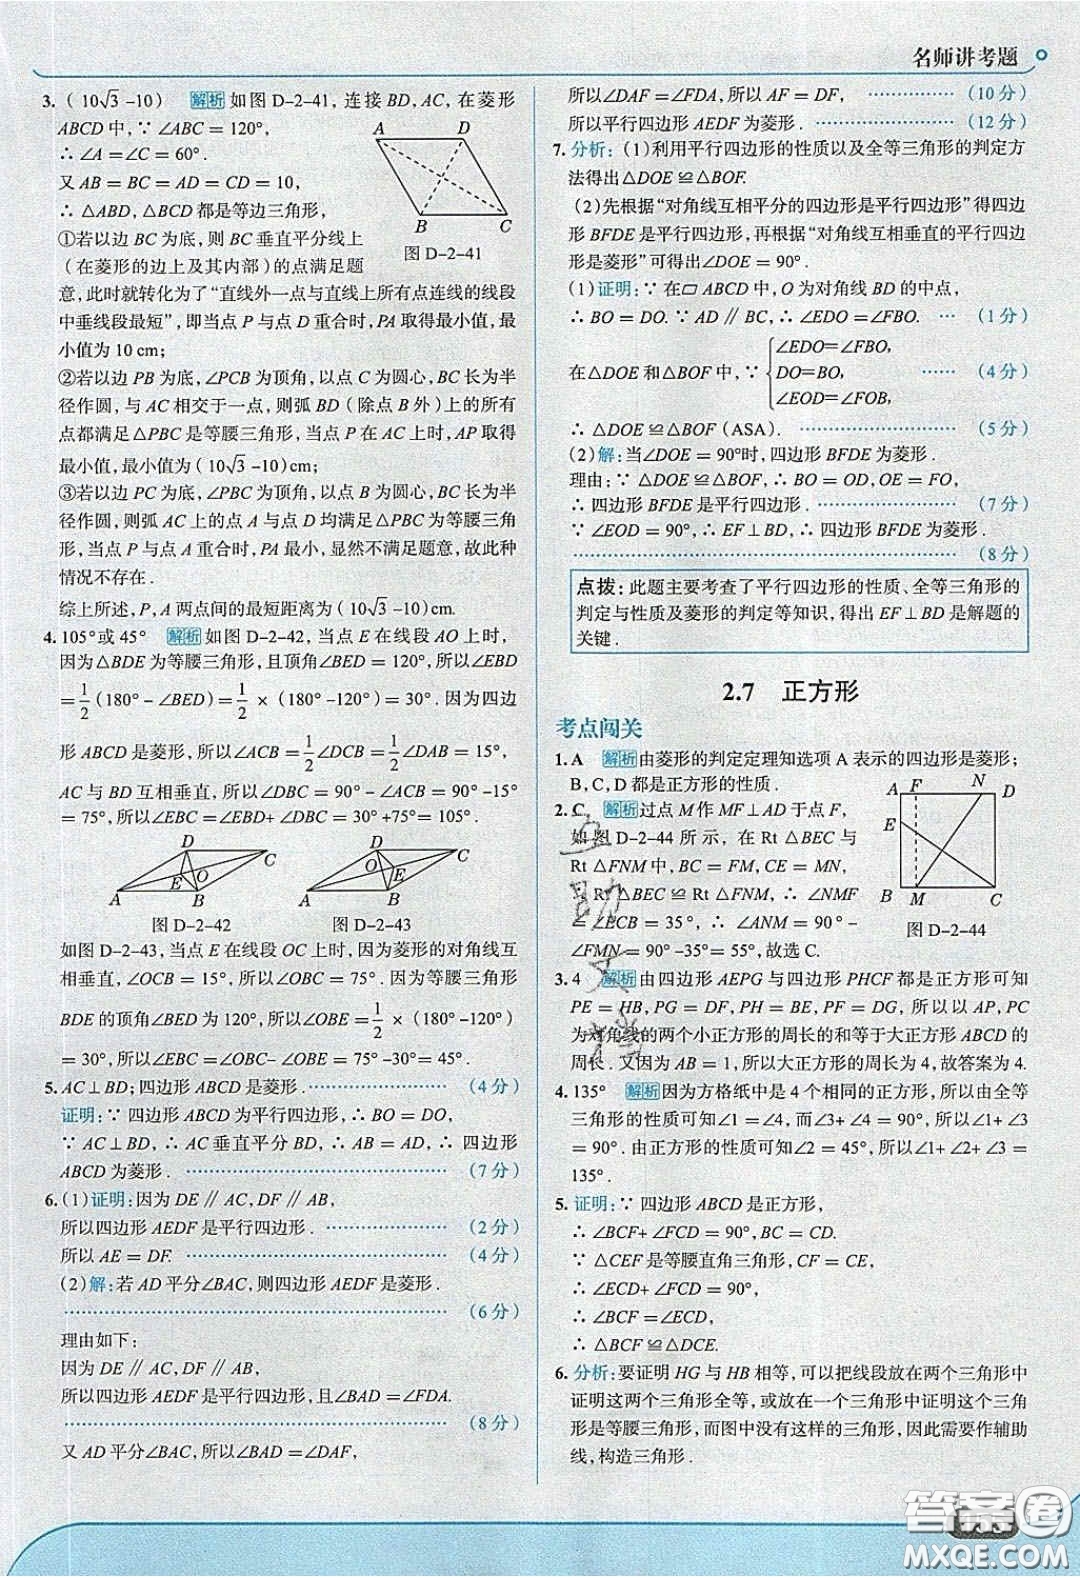 名师讲考题
3. (10√3 -10) 解析 如图 D-2-41, 连接 BD, AC, 在菱形
ABCD 中, ∵ ∠ABC = 120°,
∴ ∠A = ∠C = 60°.
又 AB = BC = AD = CD = 10,
∴ △ABD, △BCD 都是等边三角形,
①若以边 BC 为底, 则 BC 垂直平分线上
(在菱形的边上及其内部) 的点满足题
A D
B C
图 D-2-41
意, 此时就转化为了“直线外一点与直线上所有点连线的线段
中垂线段最短”, 即当点 P 与点 D 重合时, PA 取得最小值, 最
小值为 10 cm;
②若以边 PB 为底, ∠PCB 为顶角, 以点 C 为圆心, BC 长为半
径作圆, 与 AC 相交于一点, 则弧 BD (除点 B 外) 上的所有
点都满足△PBC 是等腰三角形, 当点 P 在 AC 上时, AP 取得
最小值, 最小值为 (10√3 -10) cm;
③若以边 PC 为底, ∠PBC 为顶角, 以点 B 为圆心, BC 长为半
径作圆, 则弧 AC 上的点 A 与点 D 均满足△PBC 为等腰三角
形, 当点 P 与点 A 重合时, PA 最小, 显然不满足题意, 故此种
情况不存在.
综上所述, P, A 两点间的最短距离为 (10√3 -10) cm.
4. 105°或 45° 解析 如图 D-2-42, 当点 E 在线段 AO 上时,
因为△BDE 为等腰三角形, 且顶角∠BED = 120°, 所以∠EBD
= 1/2 (180° - ∠BED) = 1/2 × (180° -120°) = 30°. 因为四边
形 ABCD 是菱形, 所以∠ACB = 1/2 ∠DCB = 1/2 ∠DAB = 15°,
AC 与 BD 互相垂直, 所以∠DBC = 90° - ∠ACB = 90° -15°
= 75°, 所以∠EBC = ∠EBD+ ∠DBC = 30° +75° = 105°.
D C
E O
A B
图 D-2-42
D C
O E
A B
图 D-2-43
如图 D-2-43, 当点 E 在线段 OC 上时, 因为菱形的对角线互
相垂直, ∠OCB = 15°, 所以∠OBC = 75°. 因为等腰三角形
BDE 的顶角∠BED 为 120°, 所以∠OBE = 1/2 × (180° -120°)
= 30°, 所以∠EBC = ∠OBC- ∠OBE = 75° -30° = 45°.
5. AC⊥BD; 四边形 ABCD 是菱形. (4 分)
证明: ∵ 四边形 ABCD 为平行四边形, ∴ BO = DO,
∵ AC⊥BD, ∴ AC 垂直平分 BD, ∴ AB = AD, ∴ 四边形
ABCD 为菱形. (7 分)
6. (1) 证明: 因为 DE∥AC, DF∥AB,
所以四边形 AEDF 是平行四边形. (2 分)
所以 AE = DF. (4 分)
(2) 解: 若 AD 平分∠BAC, 则四边形 AEDF 是菱形.
(6 分)
理由如下:
因为 DE∥AC, DF∥AB,
所以四边形 AEDF 是平行四边形, 且∠BAD = ∠FDA.
(8 分)
又 AD 平分∠BAC, 所以∠BAD = ∠DAF,
所以∠DAF = ∠FDA, 所以 AF = DF, (10 分)
所以平行四边形 AEDF 为菱形. (12 分)
7. 分析: (1) 利用平行四边形的性质以及全等三角形的判定方
法得出△DOE≌△BOF.
(2) 先根据“对角线互相平分的四边形是平行四边形”得四边
形 BFDE 是平行四边形, 再根据“对角线互相垂直的平行四边
形是菱形”可得出∠DOE = 90°.
(1) 证明: ∵ 在▱ABCD 中, O 为对角线 BD 的中点,
∴ BO = DO. ∵ AD∥BC, ∴ ∠EDO = ∠FBO. (1 分)
在△DOE 和△BOF 中, ∵ { ∠EDO=∠FBO,
DO=BO, (4 分)
∠EOD=∠FOB,
∴ △DOE≌△BOF (ASA). (5 分)
(2) 解: 当∠DOE = 90°时, 四边形 BFDE 为菱形.
理由: ∵ △DOE≌△BOF, ∴ BO = OD, OE = FO,
∴ 四边形 BFDE 是平行四边形. (7 分)
∵ ∠EOD = 90°, ∴ EF⊥BD, ∴ 四边形 BFDE 为菱形.
(8 分)
点拨: 此题主要考查了平行四边形的性质、全等三角形的
判定与性质及菱形的判定等知识, 得出 EF⊥BD 是解题的
关键.
2.7 正方形
考点闯关
1. A 解析 由菱形的判定定理知选项 A 表示的四边形是菱形;
B, C, D 都是正方形的性质.
2. C 解析 过点 M 作 MF⊥AD 于点 F,
如图 D-2-44 所示, 在 Rt △BEC 与
Rt △FNM 中, BC = FM, CE = MN,
Rt △BEC ≌ Rt △FNM, ∴ ∠NMF
= ∠ECB = 35°, ∴ ∠ANM = 90° -
∠FMN = 90° -35° = 55°, 故选 C.
A F N D
E
B M C
图 D-2-44
3. 4 解析 由四边形 AEPG 与四边形 PHCF 都是正方形可知
PE = HB, PG = DF, PH = BE, PF = DG, 所以以 AP, PC
为对角线的两个小正方形的周长的和等于大正方形 ABCD 的
周长. 又因为 AB = 1, 所以大正方形的周长为 4, 故答案为 4.
4. 135° 解析 因为方格纸中是 4 个相同的正方形, 所以由全等
三角形的性质可知∠1 = ∠4, 而∠3+ ∠4 = 90°, 所以∠1+ ∠3
= 90°. 由正方形的性质可知∠2 = 45°, 所以∠1+ ∠2+ ∠3 =
135°.
5. 证明: ∵ 四边形 ABCD 是正方形,
∴ ∠BCF+ ∠FCD = 90°, BC = CD.
∵ △CEF 是等腰直角三角形, CF = CE,
∴ ∠ECD+ ∠FCD = 90°,
∴ ∠BCF = ∠ECD,
∴ △BCF≌△DCE.
6. 分析: 要证明 HG 与 HB 相等, 可以把线段放在两个三角形中
证明这两个三角形全等, 或放在一个三角形中证明这个三角
形是等腰三角形, 而图中没有这样的三角形, 因此需要作辅助
线, 构造三角形.
答案圈
MXQE.COM